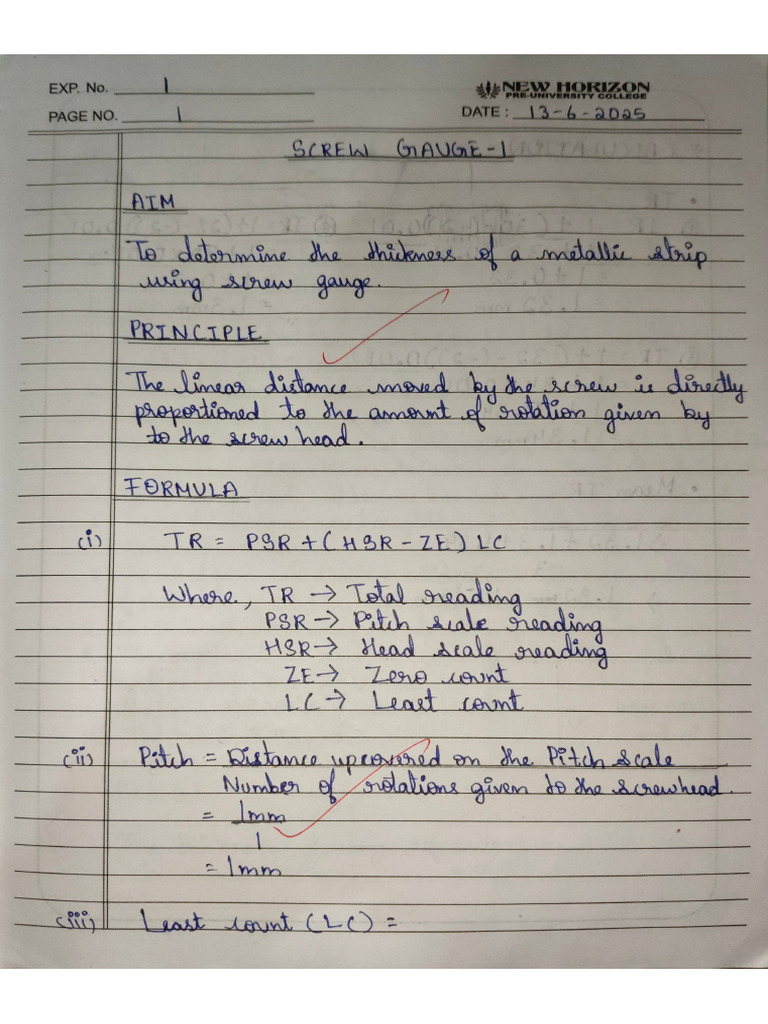 EXP. No. 1
NEW HORIZON
PRE-UNIVERSITY COLLEGE
PAGE NO. 1
DATE : 13-6-2025
SCREW GAUGE-1
AIM
To determine the thickness of a metallic strip
using screw gauge.
PRINCIPLE
The linear distance moved by the screw is directly
proportioned to the amount of rotation given by
to the screw head.
FORMULA
(i) TR = PSR + (HSR - ZE) LC
Where, TR → Total reading
PSR → Pitch scale reading
HSR → Head scale reading
ZE → Zero count
LC → Least count
(ii) Pitch = Distance covered on the Pitch Scale
Number of rotations given to the screwhead.
= 1mm
1
= 1mm
(iii) Least count (LC) =